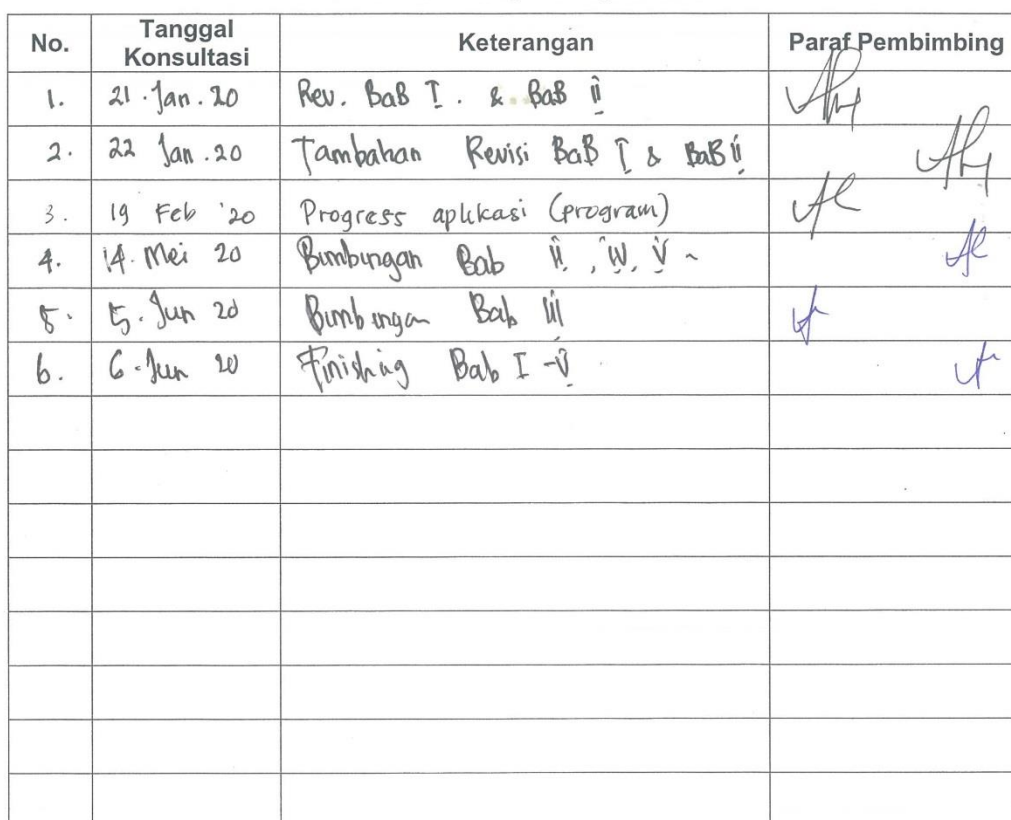 No. Tanggal Konsultasi Keterangan Paraf Pembimbing
1. 21. Jan. 20 Rev. BaB I. & BaB II
2. 22 Jan. 20 Tambahan Revisi BaB I & BaB II
3. 19 Feb '20 Progress aplikasi (program)
4. 14. Mei 20 Bimbingan Bab II, IV, V
5. 5. Jun 20 Bimbingan Bab III
6. 6. Jun 20 Finishing Bab I - V